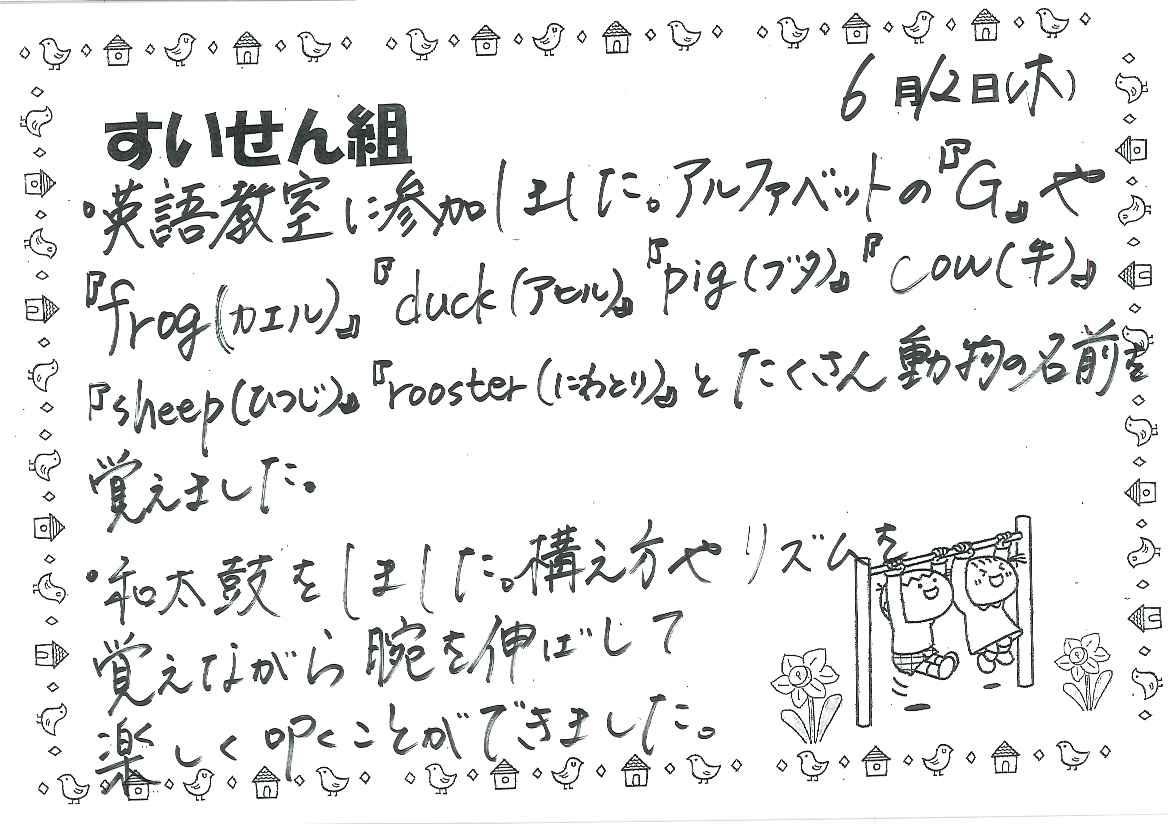 6月12日(木)
すいせん組
・英語教室に参加しました。アルファベットの『G』や
『frog(カエル)』『duck(アヒル)』『pig(ブタ)』『cow(牛)』
『sheep(ひつじ)』『rooster(にわとり)』とたくさん動物の名前を
覚えました。
・和太鼓をしました。構え方やリズムを
覚えながら腕を伸ばして
楽しく叩くことができました。